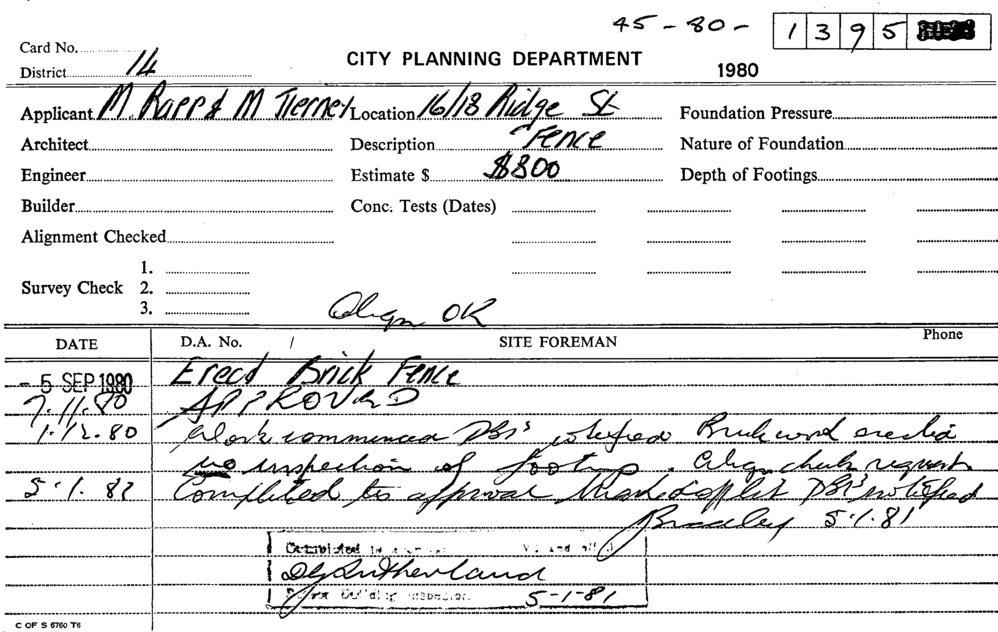 45-80- 1395
Card No.
District 14
CITY PLANNING DEPARTMENT
1980
Applicant M. Rapp & M Tierney Location 16/18 Ridge St Foundation Pressure
Architect Description Fence Nature of Foundation
Engineer Estimate $ $800 Depth of Footings
Builder Conc. Tests (Dates)
Alignment Checked
1.
Survey Check 2.
3.
Align OK
DATE D.A. No. / SITE FOREMAN Phone
- 5 SEP 1980 Erect Brick Fence
7.11.80 APPROVED
1.12.80 Work commenced DBI's notified Brickwork erected
no inspection of footings. Align check request
Completed to approval DBI's notified
Bradley 5.1.81
Completed
Sutherland
Building Inspector 5-1-81
C OF S 6760 T6